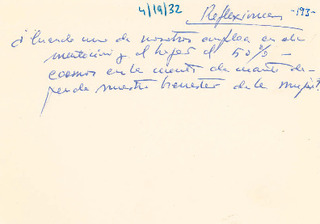 4/19/32 Reflexiones -193-
¿Cuando uno de nosotros emplea en ali-
mentación y el hogar el 50% -
en la cuenta de cuanto de-
pende nuestro bienestar de la mujer?